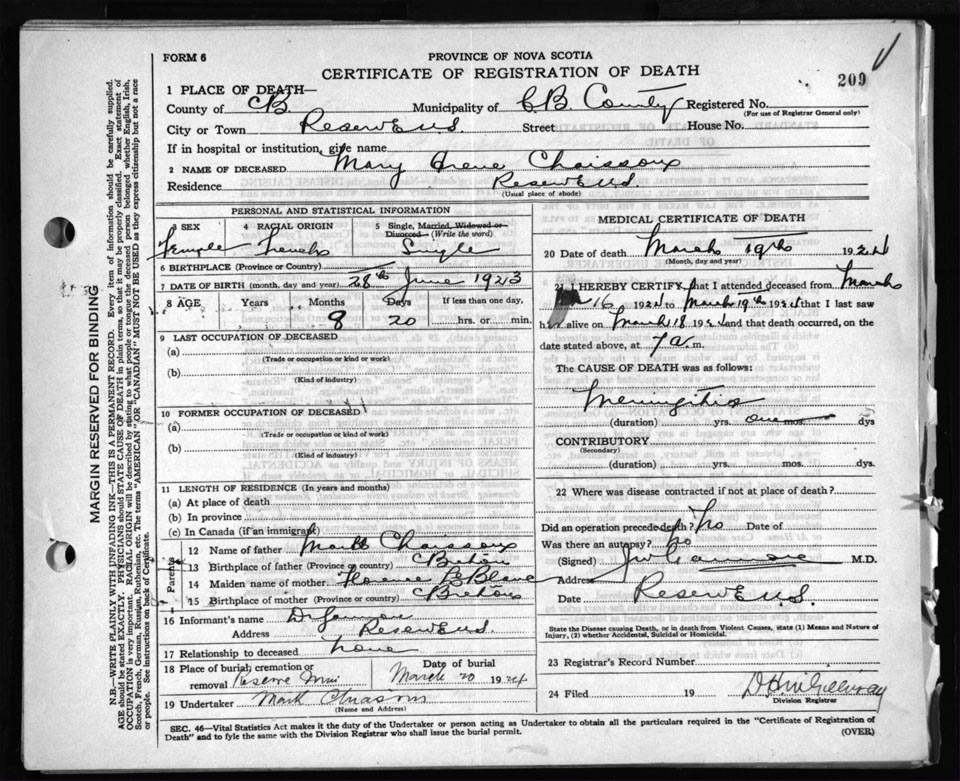 FORM 6
PROVINCE OF NOVA SCOTIA
CERTIFICATE OF REGISTRATION OF DEATH
209
1 PLACE OF DEATH—
County of CB Municipality of CB County Registered No.
(For use of Registrar General only)
City or Town Street House No.
If in hospital or institution, give name
2 NAME OF DECEASED Mary Irene Chaisson
Residence
(Usual place of abode)
PERSONAL AND STATISTICAL INFORMATION
3 SEX 4 RACIAL ORIGIN 5 Single, Married, Widowed or Divorced (Write the word)
Female French Single
6 BIRTHPLACE (Province or Country)
7 DATE OF BIRTH (month, day and year) 28th June 1923
8 AGE Years Months Days If less than one day,
8 20 hrs. or min.
9 LAST OCCUPATION OF DECEASED
(a)
(Trade or occupation or kind or work)
(b)
(Kind of industry)
10 FORMER OCCUPATION OF DECEASED
(a)
(Trade or occupation or kind of work)
(b)
(Kind of industry)
11 LENGTH OF RESIDENCE (In years and months)
(a) At place of death
(b) In province
(c) In Canada (if an immigrant)
Parents
12 Name of father Mark Chaisson
13 Birthplace of father (Province or country) C Breton
14 Maiden name of mother Florence LeBlanc
15 Birthplace of mother (Province or country) C Breton
16 Informant's name
Address
17 Relationship to deceased none
18 Place of burial, cremation or removal Reserve Mines Date of burial March 20 1924
19 Undertaker Mark Chiasson
(Name and Address)
MEDICAL CERTIFICATE OF DEATH
20 Date of death March 19th 1924
(Month, day and year)
21 I HEREBY CERTIFY that I attended deceased from March
16 1924 to March 19th 1924 that I last saw
her alive on March 18 1924 and that death occurred, on the
date stated above, at 7 a. m.
The CAUSE OF DEATH was as follows:
Meningitis
(duration) yrs. mos. dys
CONTRIBUTORY
(Secondary)
(duration) yrs. mos. dys.
22 Where was disease contracted if not at place of death?
Did an operation precede death? No Date of
Was there an autopsy? No
(Signed) M.D.
Address
Date
State the Disease causing Death, or in death from Violent Causes, state (1) Means and Nature of
Injury, (2) whether Accidental, Suicidal or Homicidal.
23 Registrar's Record Number
24 Filed 19
Division Registrar
SEC. 46—Vital Statistics Act makes it the duty of the Undertaker or person acting as Undertaker to obtain all the particulars required in the "Certificate of Registration of
Death" and to fyle the same with the Division Registrar who shall issue the burial permit. (OVER)
MARGIN RESERVED FOR BINDING
N.B.—WRITE PLAINLY WITH UNFADING INK—THIS IS A PERMANENT RECORD. Every item of information should be carefully supplied.
AGE should be stated EXACTLY. PHYSICIANS should STATE CAUSE OF DEATH in plain terms, so that it may be properly classified. Exact statement of
OCCUPATION is very important. RACIAL ORIGIN will be described by stating to what people or tongue the deceased person belonged whether English, Irish,
Scotch, French, German, Russian, Ruthenian, etc. The terms "AMERICAN" OR "CANADIAN" MUST NOT BE USED as they express citizenship but not a race
or people. See instructions on back of Certificate.